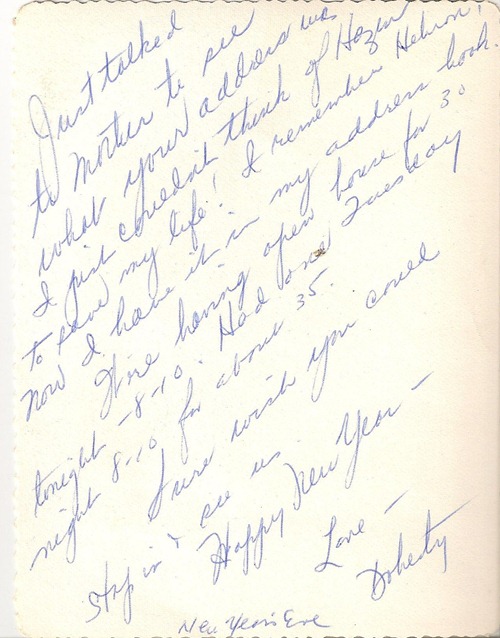 Just talked
to mother to see
what your address was
I just couldn't think of Hazen
to save my life! I remember Hebron!
now I have it in my address book.
We're having open house for 30
tonight - 8-10. Had one Tuesday
night 8-10 for about 35.
Sure wish you could
stop in & see us.
Happy New Year -
Love -
Doherty
New Year's Eve